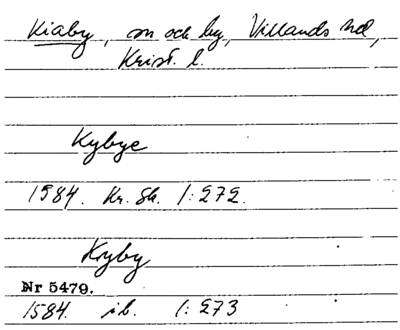 Kiaby, sn och by, Villands hd,
Krist. l.
Kybye
1584. Kr. Sk. 1:272.
Kyby
Nr 5479.
1584. ib. 1:273